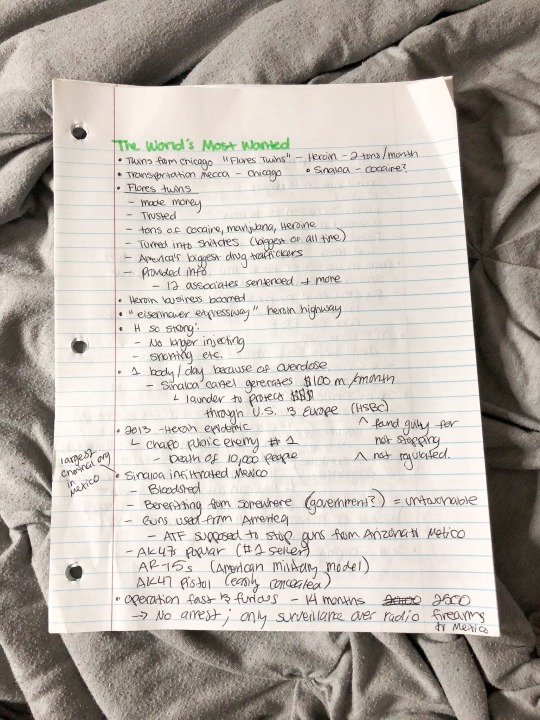 The World's Most Wanted
• Twins from Chicago "Flores Twins" - Heroin - 2 tons/month
• Transportation mecca - Chicago • Sinaloa - cocaine?
• Flores twins
- made money
- Trusted
- tons of cocaine, marijuana, Heroine
- Turned into snitches (biggest of all time)
- America's biggest drug traffickers
- Provided info
- 12 associates sentenced + more
• Heroin business boomed
• "eisenhower expressway" heroin highway
• H so strong:
- No longer injecting
- snorting etc.
• 1 body/day because of overdose
- Sinaloa cartel generates $100 m/month
└ launder to protect $$$
through U.S. & Europe (HSBC)
^ found guilty for
not stopping
^ not regulated.
• 2013 - Heroin epidemic
└ Chapo public enemy #1
- Death of 10,000 people
largest
criminal org
in
Mexico
• Sinaloa infiltrated Mexico
- Bloodshed
- Benefiting from somewhere (government?) = untouchable
- Guns used from America
- ATF supposed to stop guns from Arizona to Mexico
- AK47s popular (#1 seller)
AR-15s (American military model)
AK47 Pistol (easily concealed)
• Operation fast & furious - 14 months 2600
firearms
to Mexico
→ No arrest; only surveillance over radio